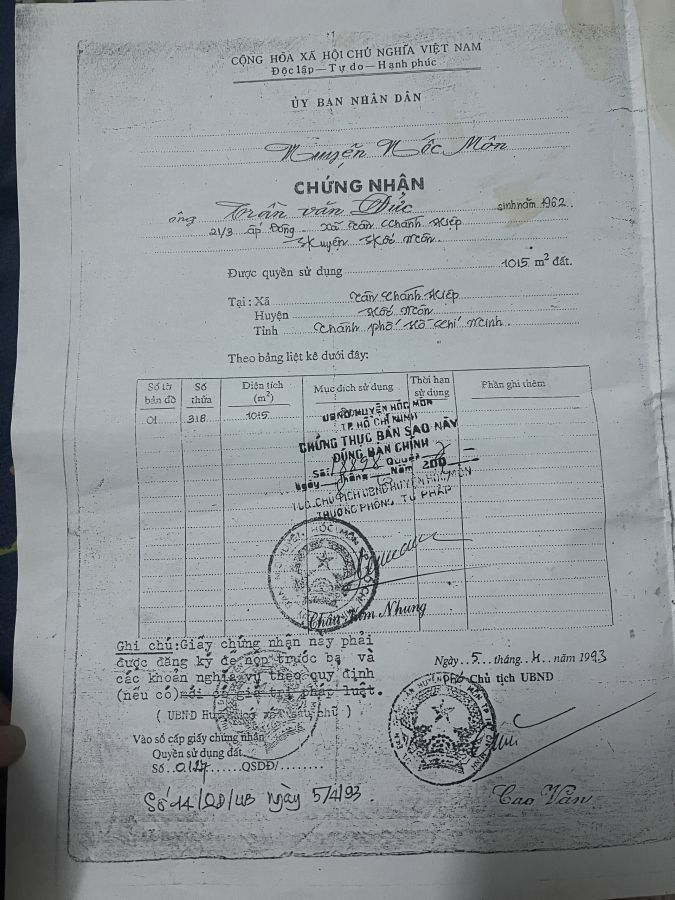 CỘNG HÒA XÃ HỘI CHỦ NGHĨA VIỆT NAM
Độc lập — Tự do — Hạnh phúc
ỦY BAN NHÂN DÂN
Huyện Hóc Môn
CHỨNG NHẬN
ông Trần văn Đức sinh năm 1962.
21/3 ấp Đông xã Tân Chánh Hiệp
Huyện Hóc Môn
Được quyền sử dụng 1015 m² đất.
Tại : Xã Tân Chánh Hiệp
Huyện Hóc Môn
Tỉnh Thành phố Hồ Chí Minh.
Theo bảng liệt kê dưới đây:
Số tờ bản đồ
Số thửa
Diện tích (m²)
Mục đích sử dụng
Thời hạn sử dụng
Phần ghi thêm
01 318 1015
UBND HUYỆN HÓC MÔN
TP. HỒ CHÍ MINH
CHỨNG THỰC BẢN SAO NÀY
ĐÚNG BẢN CHÍNH
Số: 18898 Quyển
Ngày Tháng Năm 200
TUQ. CHỦ TỊCH UBND HUYỆN HÓC MÔN
TRƯỞNG PHÒNG TƯ PHÁP
Kim Nhung
Ghi chú:Giấy chứng nhận này phải
được đăng ký để nộp trước bạ và
các khoản nghĩa vụ theo quy định
(nếu có)mới có giá trị pháp luật.
( UBND )
Ngày 5 tháng 4 năm 1993
PHÓ Chủ tịch UBND
Vào sổ cấp giấy chứng nhận
Quyền sử dụng đất
Số 0127 QSDĐ/
Số 14/QĐ/UB ngày 5/4/93.
Cao Văn